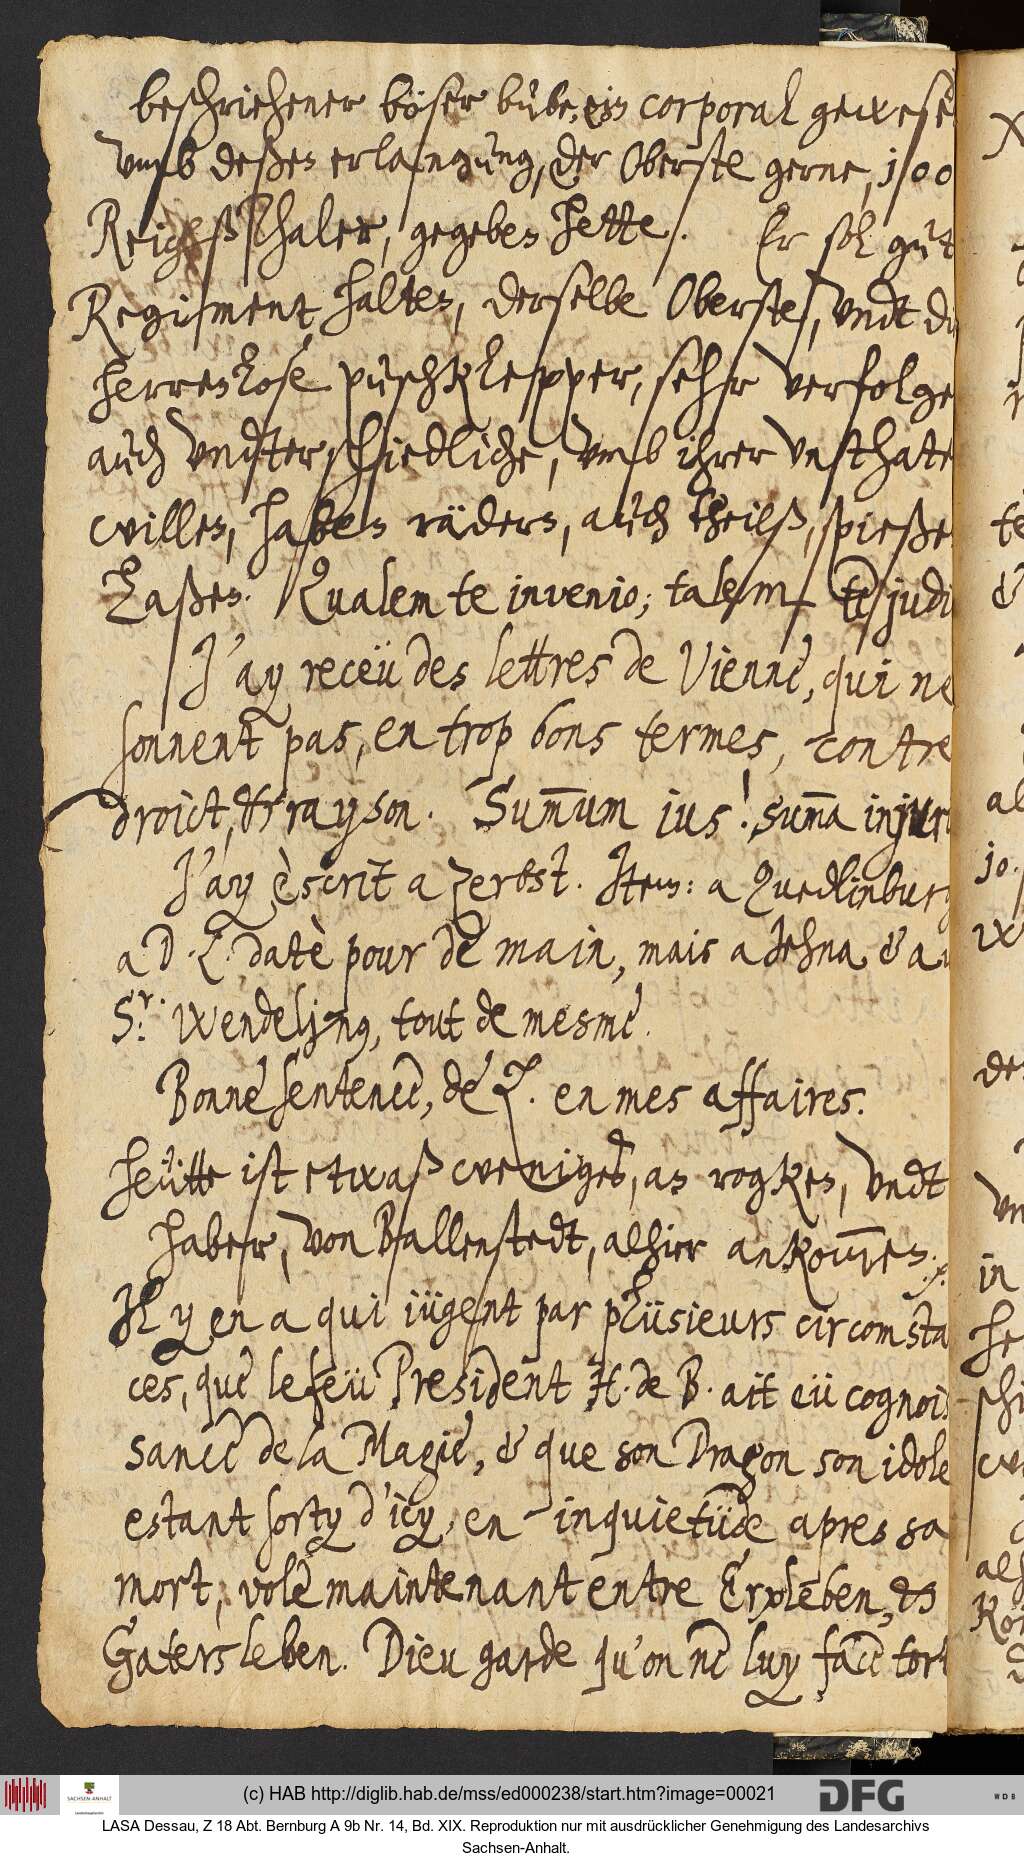 beschriehener böser bube, ein corporal gewese
vmb deßen erlangung, der Oberste gerne, 100
ReichsThaler, gegeben hette. Er sol gut
Regiment halten, derselbe Oberste, vndt di
herrenlose puschklepper, sehr verfolge
auch vndterschiedliche, vmb ihrer vnthate
willen, haben rädern, auch theilß, spieße
laßen. Qualem te invenio; talem te judi
J'ay receü des lettres de Vienne, qui ne
sonnent pas, en trop bons termes, contre
droict, & rayson. Sum̄um jus! sum̄a injuri
J'ay èscrit a Zerbst. Item: a Quedlinburg
a D. L. datè pour demain, mais a Jehna & au
Sr. Wendeljnq, tout de mesme.
Bonne sentence, de L. en mes affaires.
Heütte ist etwaß weniges, an rogken, vndt
haber, von Ballenstedt, alhier ankom̄en.
Il y en a qui iügent par plüsieurs circomsta
ces, que le feü President H. de B. ait eü cognois
sance de la Magie, & que son Dragon son idole
estant sorty d'icy, en inquietüde apres sa
mort, vole maintenant entre Erxleben, &
Gatersleben. Dieu garde qu'on ne luy face tort
(c) HAB http://diglib.hab.de/mss/ed000238/start.htm?image=00021
SACHSEN-ANHALT
DFG
WDB
LASA Dessau, Z 18 Abt. Bernburg A 9b Nr. 14, Bd. XIX. Reproduktion nur mit ausdrücklicher Genehmigung des Landesarchivs
Sachsen-Anhalt.